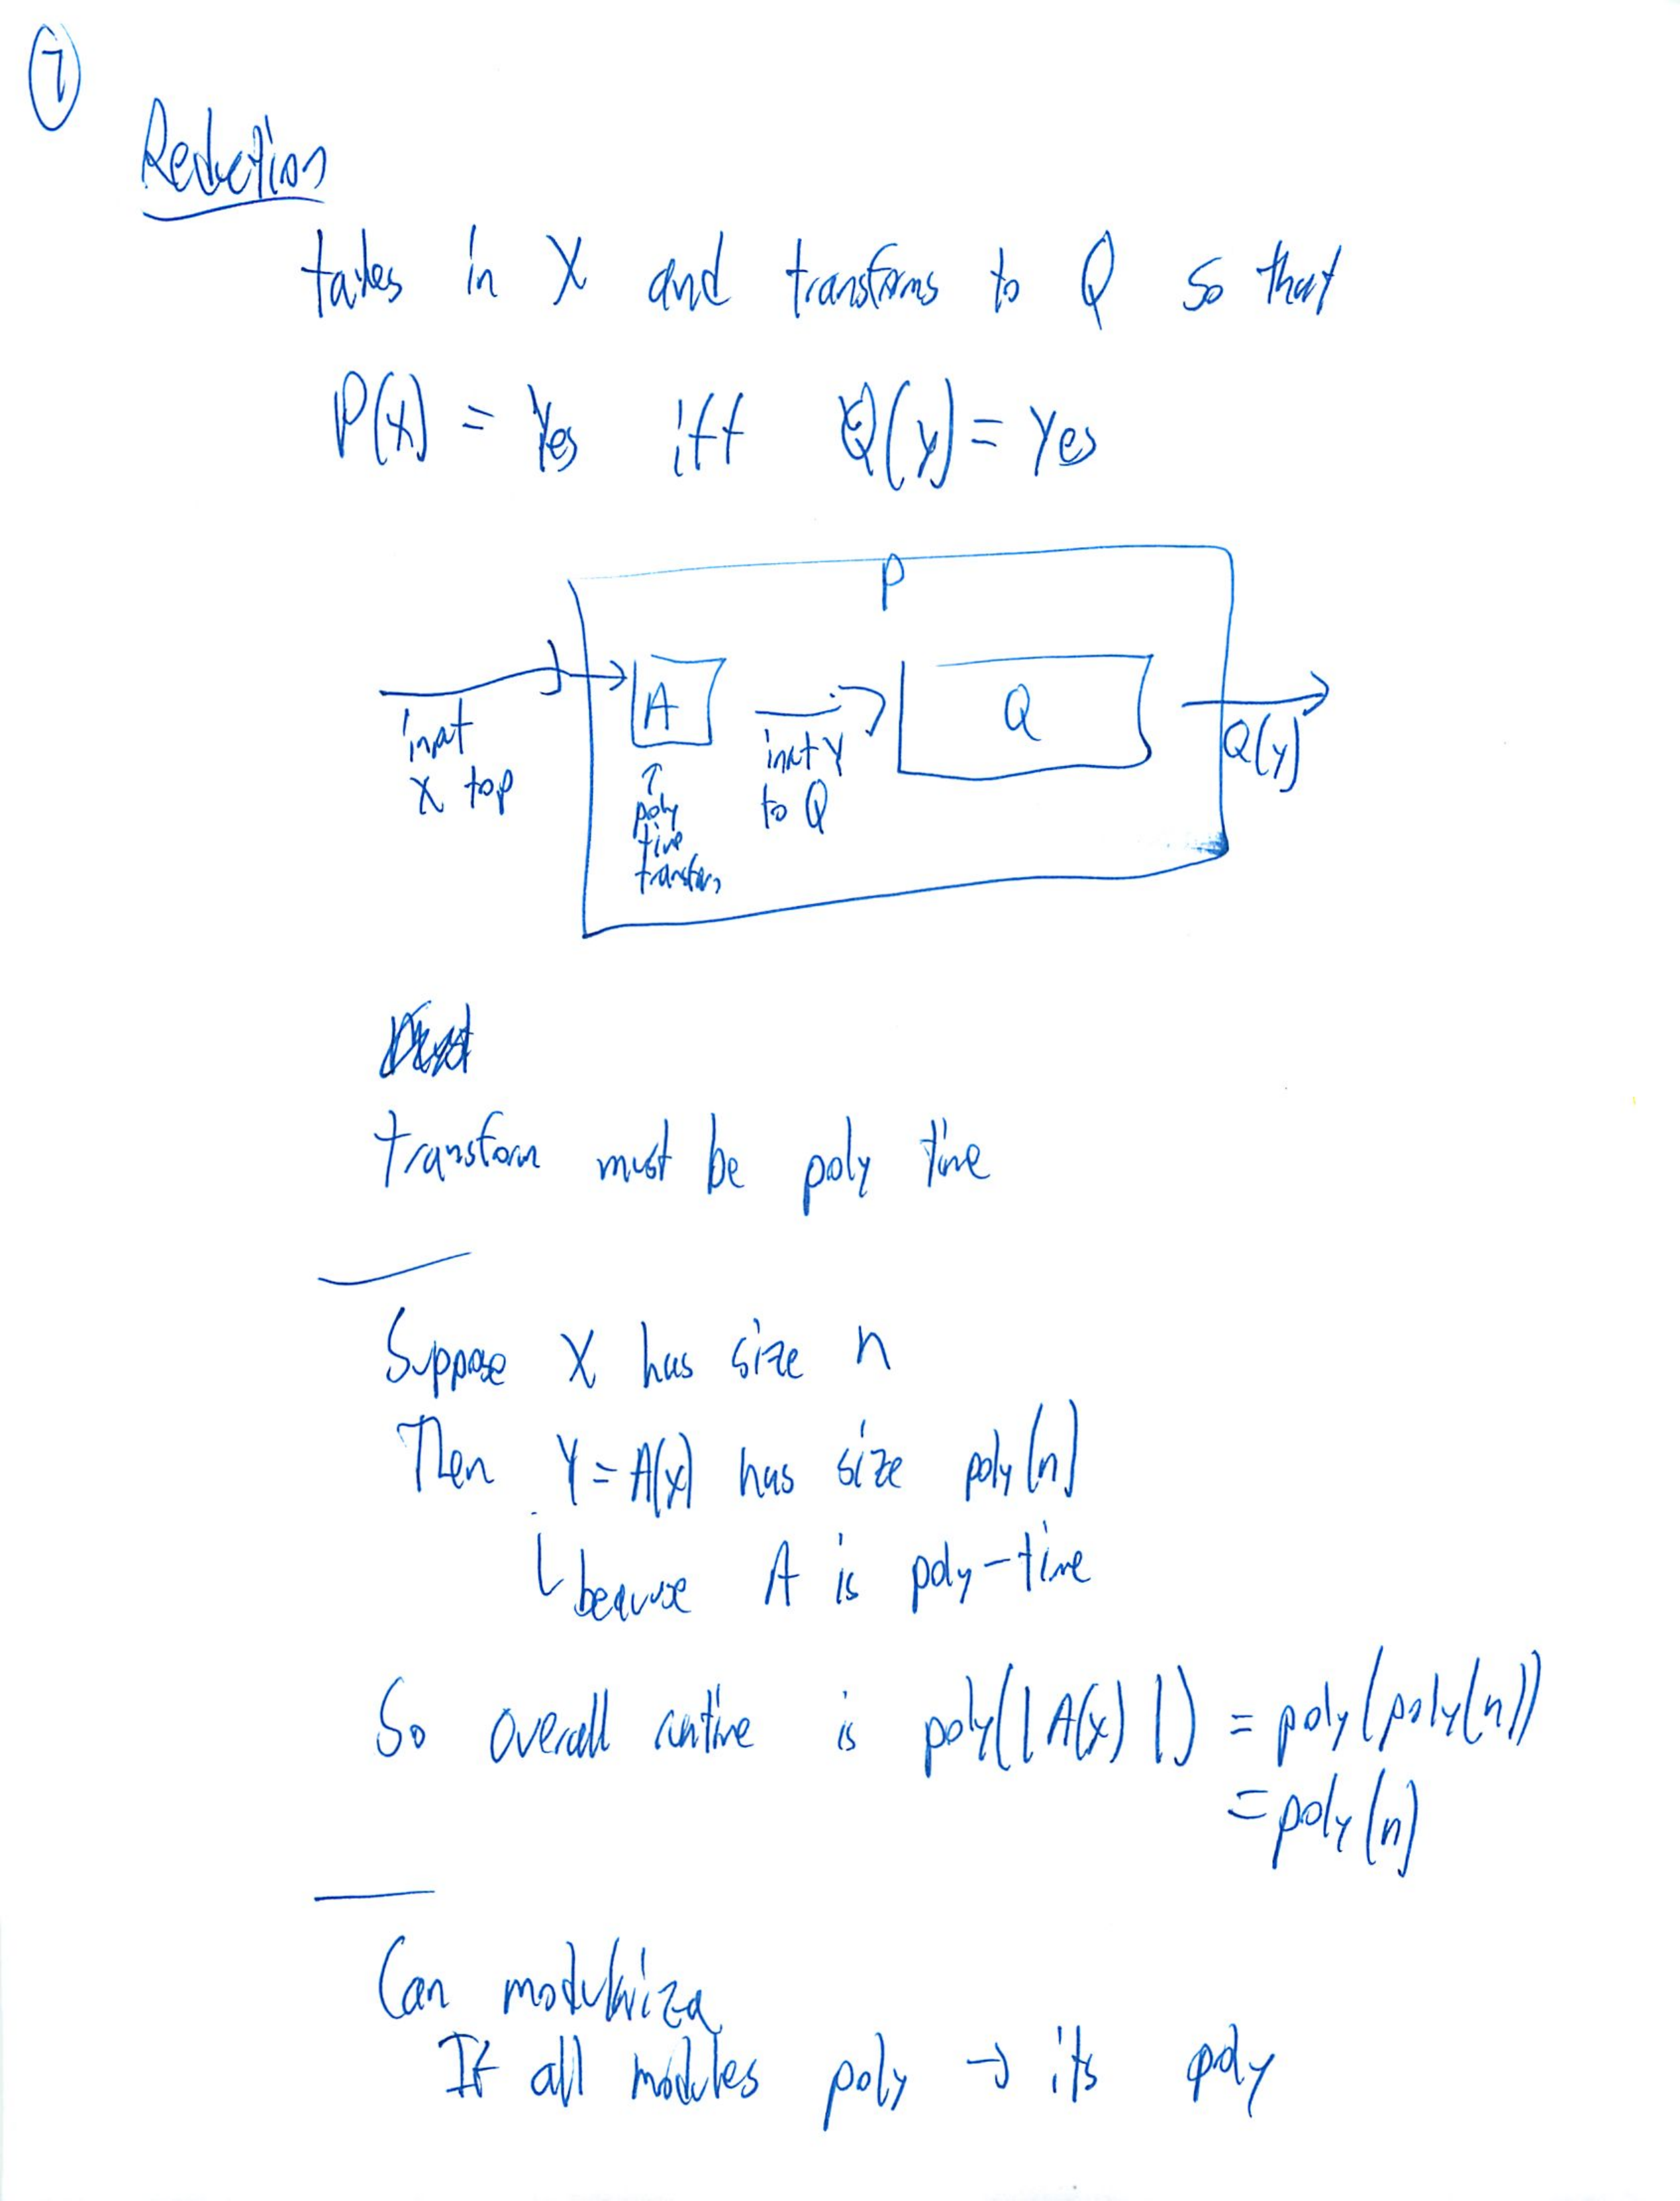 7
Reduction
takes in X and transforms to Q so that
P(x) = Yes iff Q(y) = Yes
P
A
Q
input
x to p
input y
to Q
Q(y)
↑
poly
time
transform
transform must be poly time
Suppose X has size n
Then Y = A(x) has size poly(n)
because A is poly-time
So overall runtime is poly(|A(x)|) = poly(poly(n))
= poly(n)
Can modularize
If all modules poly → its poly